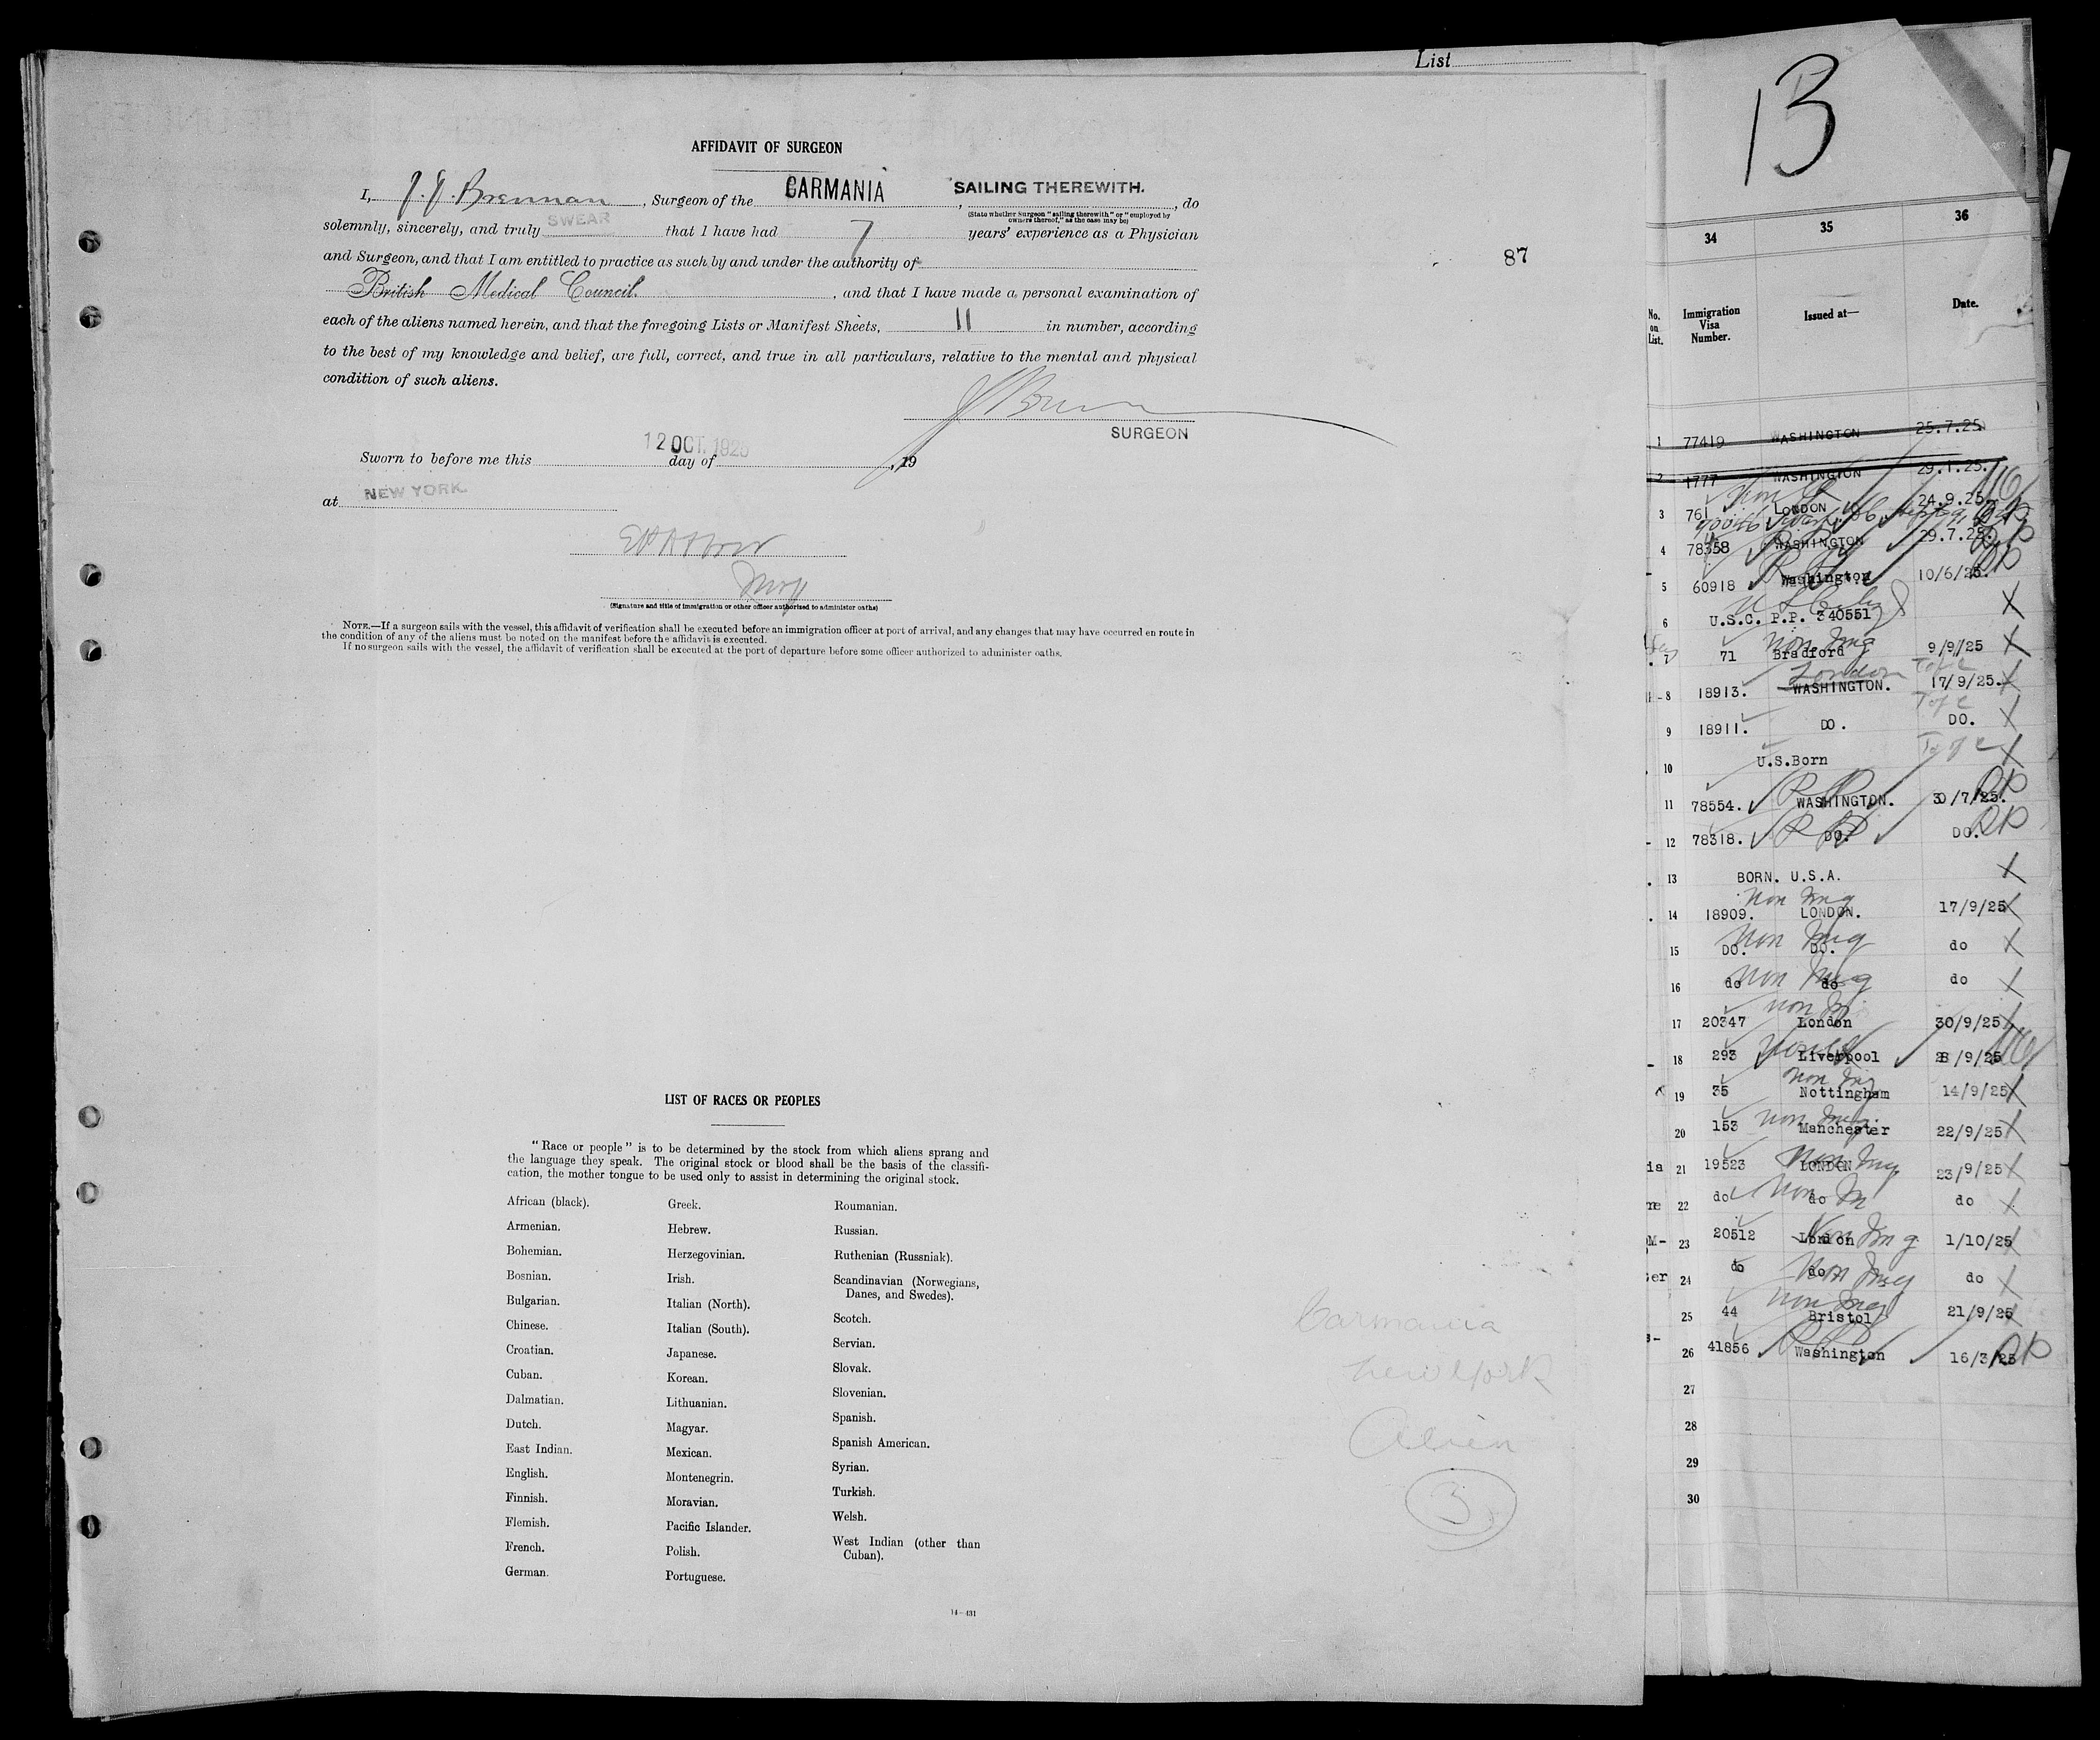 List
AFFIDAVIT OF SURGEON
I, J. J. Brennan, Surgeon of the CARMANIA, SAILING THEREWITH., do
(State whether Surgeon "sailing therewith" or "employed by
owners thereof," as the case may be)
solemnly, sincerely, and truly SWEAR that I have had 7 years' experience as a Physician
and Surgeon, and that I am entitled to practice as such by and under the authority of
British Medical Council., and that I have made a personal examination of
each of the aliens named herein, and that the foregoing Lists or Manifest Sheets, 11 in number, according
to the best of my knowledge and belief, are full, correct, and true in all particulars, relative to the mental and physical
condition of such aliens.
SURGEON
Sworn to before me this 12 OCT. 1925 day of , 19
at NEW YORK.
(Signature and title of immigration or other officer authorized to administer oaths)
NOTE.—If a surgeon sails with the vessel, this affidavit of verification shall be executed before an immigration officer at port of arrival, and any changes that may have occurred en route in
the condition of any of the aliens must be noted on the manifest before the affidavit is executed.
If no surgeon sails with the vessel, the affidavit of verification shall be executed at the port of departure before some officer authorized to administer oaths.
87
LIST OF RACES OR PEOPLES
"Race or people" is to be determined by the stock from which aliens sprang and
the language they speak. The original stock or blood shall be the basis of the classifi-
cation, the mother tongue to be used only to assist in determining the original stock.
African (black).
Armenian.
Bohemian.
Bosnian.
Bulgarian.
Chinese.
Croatian.
Cuban.
Dalmatian.
Dutch.
East Indian.
English.
Finnish.
Flemish.
French.
German.
Greek.
Hebrew.
Herzegovinian.
Irish.
Italian (North).
Italian (South).
Japanese.
Korean.
Lithuanian.
Magyar.
Mexican.
Montenegrin.
Moravian.
Pacific Islander.
Polish.
Portuguese.
Roumanian.
Russian.
Ruthenian (Russniak).
Scandinavian (Norwegians,
Danes, and Swedes).
Scotch.
Servian.
Slovak.
Slovenian.
Spanish.
Spanish American.
Syrian.
Turkish.
Welsh.
West Indian (other than
Cuban).
14-431
Carmania
New York
Alien
3
13
34 35 36
No.
on
List.
Immigration
Visa
Number.
Issued at—
Date.
1 77419 WASHINGTON 25.7.25.
2 1777 WASHINGTON 29.1.25.
3 761 LONDON 24.9.25.
4 78358 WASHINGTON 29.7.25.
5 60918 Washington 10/6/25.
6 U.S.C. P.P. 340551
Non Img
7 71 Bradford 9/9/25 X
London
8 18913. WASHINGTON. 17/9/25. X
9 18911. DO. DO. X
10 U.S.Born X
11 78554. WASHINGTON. 30/7/25.
12 78318. DO. DO.
13 BORN. U.S.A. X
Non Img
14 18909. LONDON. 17/9/25 X
Non Img
15 DO. DO. do X
Non Img
16 do do do X
17 20347 London 30/9/25
18 293 Liverpool 28/9/25
Non Img
19 35 Nottingham 14/9/25 X
Non Img
20 153 Manchester 22/9/25 X
Non Img
21 19523 LONDON 23/9/25 X
22 do do do X
Non Img
23 20512 London 1/10/25
Non Img
24 do do do X
Non Img
25 44 Bristol 21/9/25 X
26 41856 Washington 16/3/25
27
28
29
30